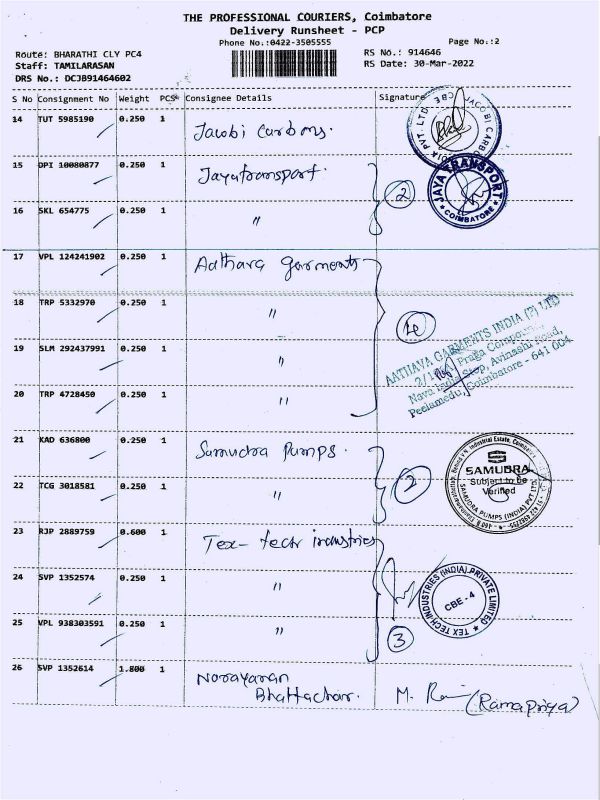 THE PROFESSIONAL COURIERS, Coimbatore
Delivery Runsheet - PCP
Phone No.:0422-3505555
Page No.:2
Route: BHARATHI CLY PC4
RS No.: 914646
Staff: TAMILARASAN
RS Date: 30-Mar-2022
DRS No.: DCJB91464602
S No Consignment No Weight PCS Consignee Details Signature
14 TUT 5985190 0.250 1 Jacobi Carbons.
15 DPI 10080877 0.250 1 Jayatransport.
2
JAYA TRANSPORT
COIMBATORE
16 SKL 654775 0.250 1 "
17 VPL 124241902 0.250 1 Aathava garments
18 TRP 5332970 0.250 1 "
4
AATHAVA GARMENTS INDIA (P) LTD
Praga
Nava India Stop, Avinashi Road,
Peelamedu, Coimbatore - 641 004
19 SLM 292437991 0.250 1 "
20 TRP 4728450 0.250 1 "
21 KAD 636800 0.250 1 Samudra Pumps.
2
SAMUDRA
Subject to be
Verified
SAMUDRA PUMPS (INDIA) PVT LTD
22 TCG 3018581 0.250 1 "
23 RJP 2889759 0.600 1 Tex-tech industries
24 SVP 1352574 0.250 1 "
TEX TECH INDUSTRIES (INDIA) PRIVATE LIMITED
CBE - 4
25 VPL 938303591 0.250 1 "
3
26 SVP 1352614 1.800 1 Narayanan
Bhattachar. M. (Ramapriya)